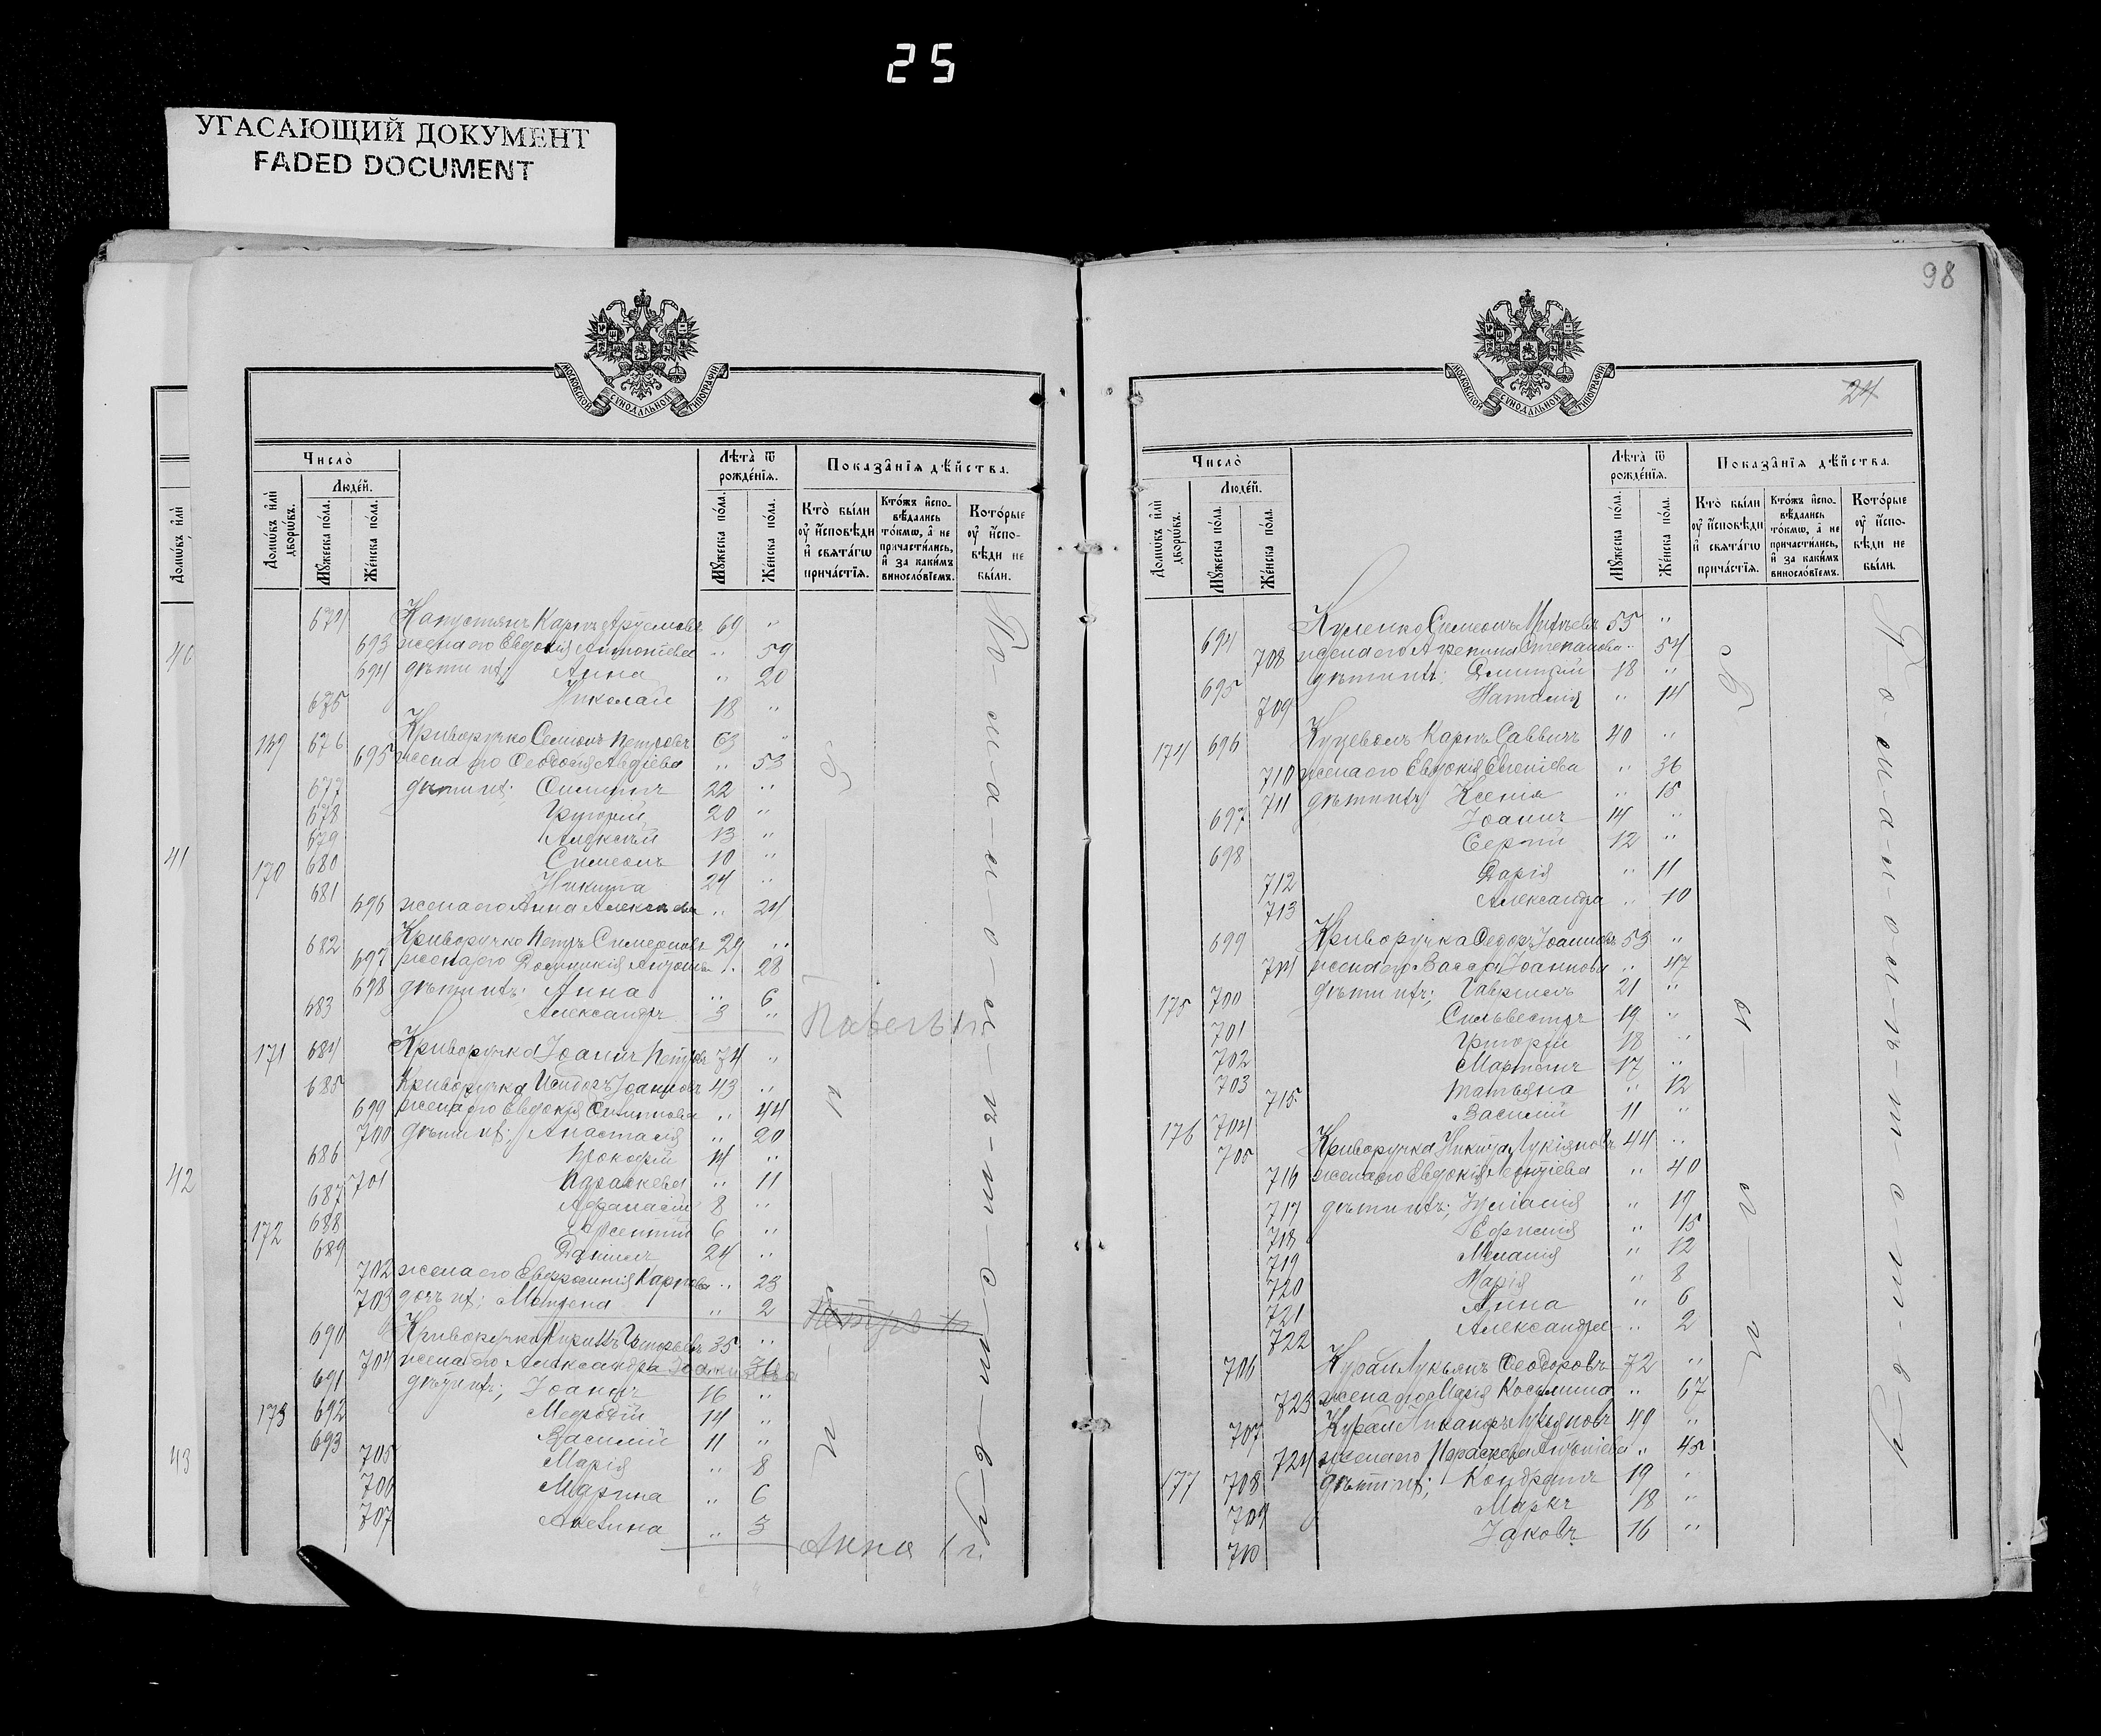 25
УГАСАЮЩИЙ ДОКУМЕНТ
FADED DOCUMENT
40
41
42
43
МОСКОВСКОЙ СѴНОДАЛЬНОЙ ТИПОГРАФІИ
Число̀
Домѡвъ и҆лѝ дворѡвъ.
Людей.
Мꙋжеска по́ла.
Же́нска по́ла.
Лѣта̀ ѿ рожде́нїѧ.
Мꙋжеска по́ла.
Же́нска по́ла.
Показа̑нїѧ дѣ́йства.
Кто̀ бы́ли оу҆ и҆́сповѣди и҆ свѧта́гѡ прича́стїѧ.
Кто́жъ и҆спо-вѣ́дались то́кмѡ, а҆ не причасти́лись, и҆ за каки́мъ винословїемъ.
Кото́рые оу҆ и҆́спо-вѣди не бы́ли.
674 Капустянъ Карпъ 69 "
693 жена его Евдокія Антоніева " 59
694 дѣти ихъ; Анна " 20
675 Николай 18 "
169 676 Криворучко Семіонъ Петровъ 63 "
695 жена его Ѳеодосія Авдіева " 53
677 дѣти ихъ: Филиппъ 22 "
678 Григорій 20 "
679 Алексѣй 13 "
170 680 Симеонъ 10 "
681 Никита 24 "
696 жена его Анна " 24
682 Криворучко Петръ Симеоновъ 29 "
697 жена его Домникія " 28
698 дѣти ихъ: Анна " 6
683 Александръ 3 "
Павелъ 1 г.
171 684 Криворучка Іоаннъ Петровъ 74 "
685 Криворучка Исидоръ Іоанновъ 43 "
699 жена его Евдокія Филиппова " 44
700 дѣти ихъ; Анастасія " 20
686 Прокофій 14 "
701 Параскева " 11
687 Аѳанасій 8 "
172 688 Арсеній 6 "
689 Даніилъ 24 "
702 жена его Евфросинія Карпова " 23
703 дочь ихъ; Матрена " 2
Петръ 1 г
690 Криворучка 35 "
704 жена его Александра 34
691 дѣти ихъ; Іоаннъ 16 "
173 692 Меѳодій 14 "
693 Василій 11 "
705 Марія " 8
706 Марина " 6
707 Акелина " 3
Анна 1 г.
98
24
МОСКОВСКОЙ СѴНОДАЛЬНОЙ ТИПОГРАФІИ
Число̀
Домѡвъ и҆лѝ дворѡвъ.
Людей.
Мꙋжеска по́ла.
Же́нска по́ла.
Лѣта̀ ѿ рожде́нїѧ.
Мꙋжеска по́ла.
Же́нска по́ла.
Показа̑нїѧ дѣ́йства.
Кто̀ бы́ли оу҆ и҆́сповѣди и҆ свѧта́гѡ прича́стїѧ.
Кто́жъ и҆спо-вѣ́дались то́кмѡ, а҆ не причасти́лись, и҆ за каки́мъ винословїемъ.
Кото́рые оу҆ и҆́спо-вѣди не бы́ли.
694 Куленко Симеонъ 55 "
708 жена его Агрепина Степанова " 54
695 дѣти ихъ: Димитрій 18 "
709 Наталія " 14
174 696 Куцеволъ Карпъ Саввичъ 40 "
710 жена его Евдокія " 36
711 дѣти ихъ; Ксенія " 15
697 Іоаннъ 14 "
698 Сергій 12 "
712 Дарія " 11
713 Александра " 10
699 Криворучка Ѳедоръ Іоанновъ 53 "
714 жена его Васса Іоаннова " 47
175 700 дѣти ихъ; Гавріилъ 21 "
701 Сильвестръ 19 "
702 Григорій 18 "
703 Мартинъ 17 "
715 Татьяна " 12
176 704 Василій 11 "
705 Криворучка Никита Лукіяновъ 44 "
716 жена его Евдокія Леонтіева " 40
717 дѣти ихъ; Іуліанія " 19
718 Евфимія " 15
719 Меланія " 12
720 Марія " 8
721 Анна " 6
722 Александра " 2
706 Курай Лукьянъ Ѳеодоровъ 72 "
723 жена его Марія Косьмина " 67
707 Курай Никаноръ Лукьяновъ 49 "
724 жена его Параскева Антоніева " 45
177 708 дѣти ихъ; Кондратъ 19 "
709 Маркъ 18 "
710 Іаковъ 16 "